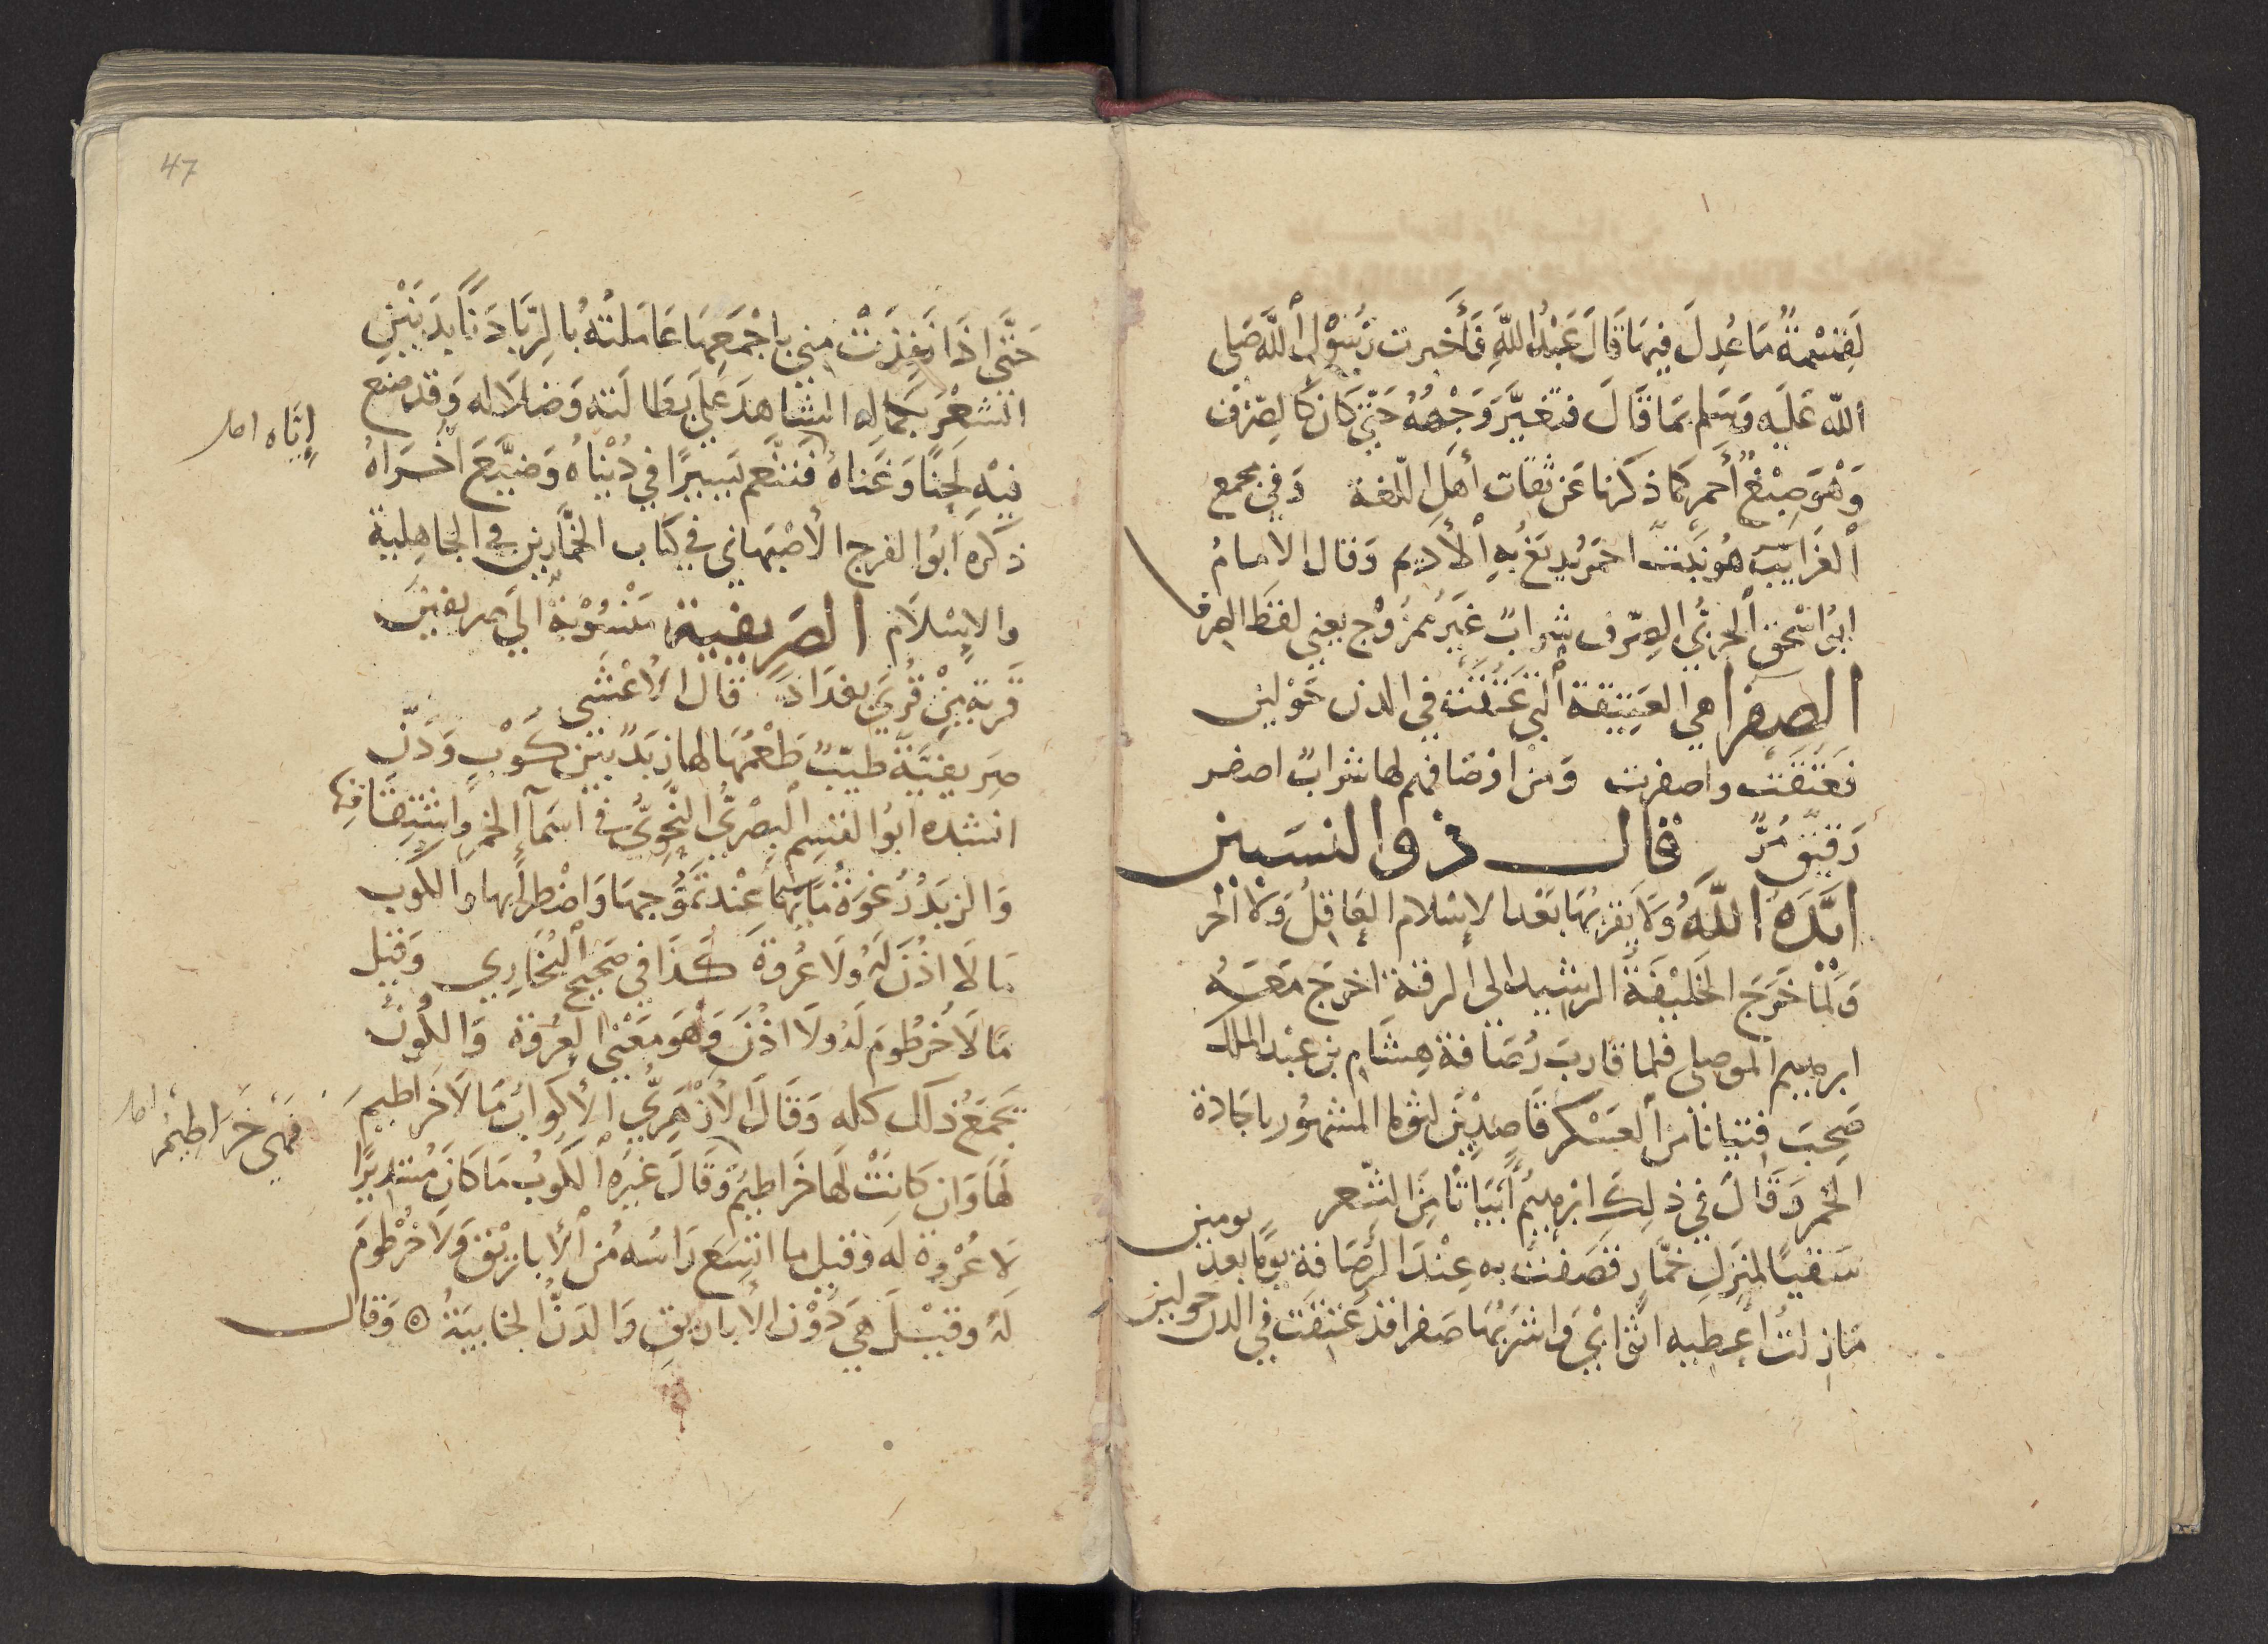 لَقِسْمَةٌ مَا عُدِلَ فِيهَا قَالَ عَبْدُ اللّهِ فَأَخبرت رَسُوْلَ اللّه صَلى
اللّه عَلَيه وَسَلم بمَا قَالَ فتَغَيَّرَ وَجْهُهُ حَتّى كَانَ كالصّرف
وَهُوَ صِبْغٌ أَحمر كما ذكرنا عَن ثقات أهل اللّغة وَفي مجمع
الغَرايب هُو نَبْت احمَر يُدبَغ بهِ الأديم وَقال الامامُ
ابُو اسْحٰق الحربيُّ الصِّرف شرابٌ غَيرُ ممزُوْج يعني لفظ الصرف
الصفرا هي العَتِيقة التي عَتَقَت في الدن حَوْلين
فعَتَقَت واصفرت وَمن اوْصَافهم لها شرابٌ اصفر
رَقيق مُزٌّ قال ذوا لنسَبين
ايّدَهُ اللّهُ وَلاَ يَقربُهَا بَعْدَ الإسْلام العَاقِلُ وَلاَ الْحُر
وَلمّا خَرَجَ الخَليْفَة الرشيد الى الرقة اخرَج مَعَهُ
ابرهيم الموصلي فلما قاربَ رُصَافة هِشَام بن عبْد الملك
صَحِبَ فتيانا من العَسْكر قاصدِيْن لثوما المشهُور باجَادة
الخمر وَقَالَ في ذلِكَ ابْرهيْمُ أبيَاتًا مِنَ الشّعر
سَقيًا لمنزلِ خمَّارٍ قصَفتُ به عِنْدَ الرُصَافةِ يَومًا بعدَ يومين
مَا زلتُ اعْطيه اثوابي وَاشرَبُهَا صَفرا قد عتقت في الدن حولين
47
حَتَّى اذَا نَفِدَتْ منى باجْمَعِهَا عَامَلتُهُ بالرِّبَا دَنًّا بدَنَيْنِ
الشعْرَ بحَمَاله الشاهدَ عَلى بطَالَته وَضلاَله وَقد صنع
إيّاه اصل
فيْهِ لَحنًا وَغَناهُ فتنَعم يَسِيْرًا في دُنيَاهُ وَضَيَّعَ اخْرَاهُ
ذكره ابُو الفرج الأصْبَهاني في كتاب الخمَّارين في الجاهِلية
والإسْلاَم الصَريفية مَنْسُوْبةٌ الى صريفين
قَرية مِن قُرَى بغدَاد قال الأعْشَى
صَريفيَّة طيّبٌ طَعْمُهَا لهَا زبَدٌ بَيْن كُوْبٍ وَدَنّ
انشده ابُو القسِم البصْريُّ النَّحوِيُّ في اسَمآء الخمر واشتقاقها
وَالزبَدُ رُغوَةٌ مَآئها عند تَمَوُّجِهَا وَاضْطرابها والكوب
مَا لاَ اذُنَ لَهُ وَلاَ عُروَةَ كَذَا في صَحيح البُخَارِي وَقيل
مَا لاَ خُرْطُومَ لَهُ وَلاَ اذُنَ وَهوَ مَعْنى العُروَة وَالكوبُ
يجمَعُ ذلك كله وَقَالَ الأزْهَريُّ الأكوابُ مَا لاَ خَراطيم
فهَى خَرَاطِيمُ اصل
لهَا وَان كانَتْ لهَا خَراطيم وَقَالَ غَيرُه الكوبُ مَا كانَ مُستديرًا
لاَ عُرْوة له وَقيل ما اتسَع رَاسُه من الأبارِيْقِ وَلاَ خُرْطُومَ
لَهُ وقيْلَ هيَ دُوْن الأباريقِ وَالدَنُّ الخَابيَةُ ۝ وَقال